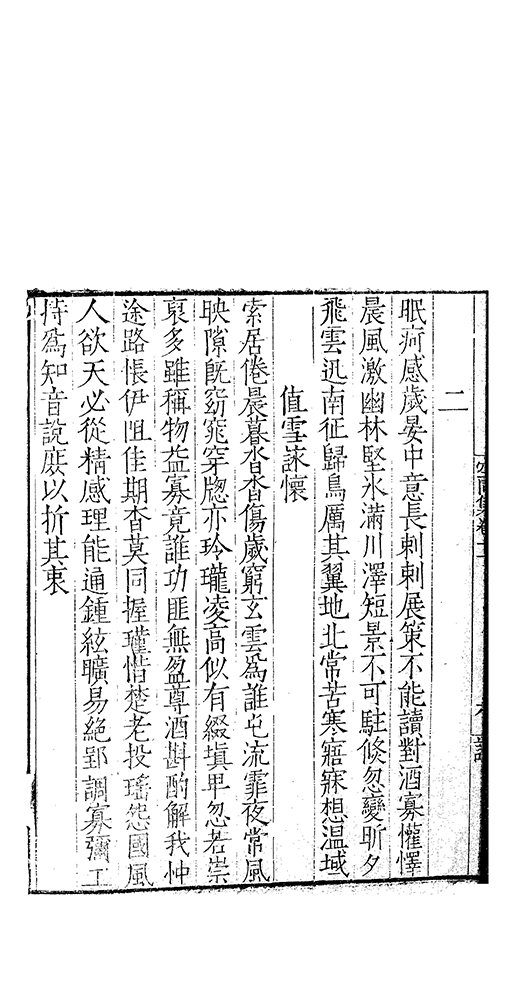 二
眠痾感歲晏中意長刺刺展策不能讀對酒寡懽懌
晨風激幽林堅氷滿川澤短景不可駐倏忽變昕夕
飛雲迅南征歸鳥厲其翼地北常苦寒寤寐想温域
值雪詠懷
索居倦晨暮杳杳傷歲窮玄雲為誰屯流霏夜常風
映隙旣窈窕穿牎亦玲瓏凌高似有綴塡卑忽若崇
裒多雖稱物益寡竟誰功匪無盈尊酒斟酌解我忡
途路悵伊阻佳期杳莫同握瓘惜楚老投瑤怨國風
人欲天必從精感理能通鍾絃曠易絶郢調寡彌工
持為知音說庶以折其衷